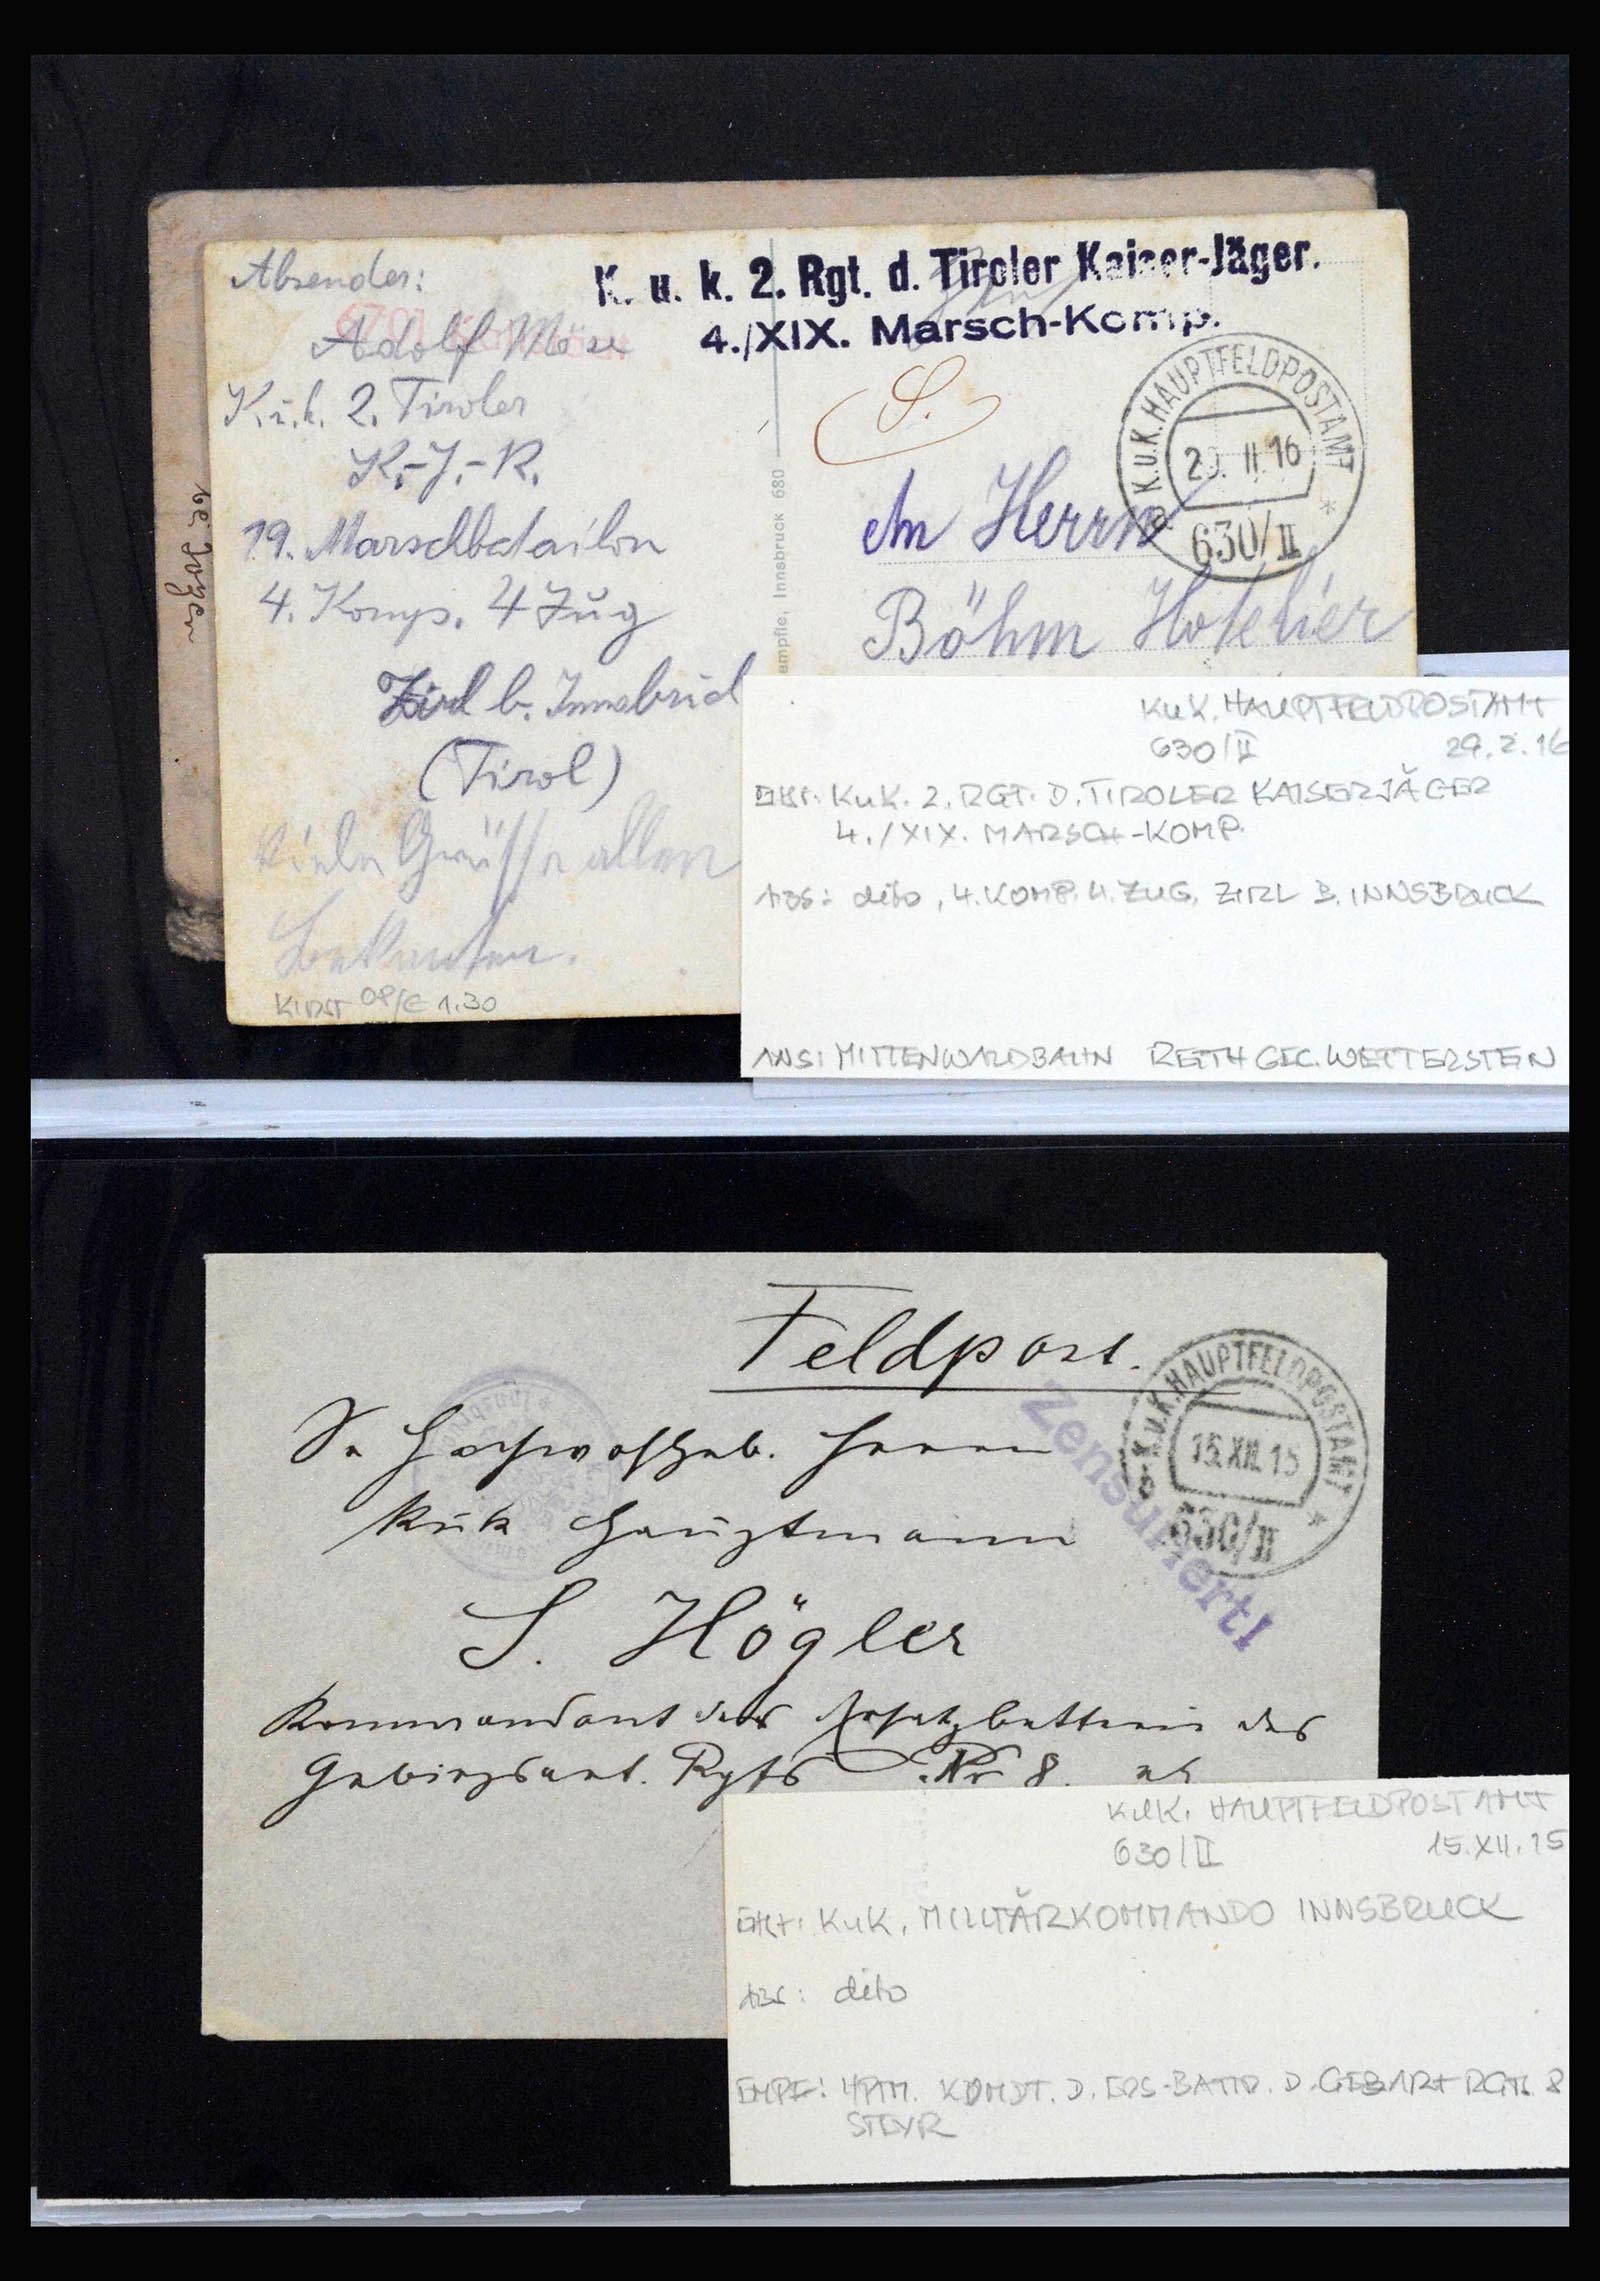 Absender:
Adolf
K. u. k. 2. Tiroler
K.-J.-R.
19. Marschbatailon
4. Komp. 4 Zug
Zirl b. Innsbruck
(Tirol)
Viele Grüsse allen
Bekannten.
08/E 1.30
K. u. k. 2. Rgt. d. Tiroler Kaiser-Jäger.
4./XIX. Marsch-Komp.
S.
K.u.K. HAUPTFELDPOSTAMT
29. II. 16
a * 630/II *
empfle, Innsbruck 680
An Herrn
Böhm Hotelier
KuK. HAUPTFELDPOSTAMT
630/II 29.2.16
KuK. 2. RGT. D. TIROLER KAISERJÄGER
4./XIX. MARSCH-KOMP.
ABS: dito, 4. KOMP. 4. ZUG, ZIRL B. INNSBRUCK
ANS: MITTENWALDBAHN REITH GEG. WETTERSTEIN
Feldpost.
Zensuriert!
K.u.K. HAUPTFELDPOSTAMT
15. XII. 15
630/II *
Sr Hochwohlgeb. Herrn
k u k Hauptmann
S. Högler
Kommandant der Ersatzbatterie des
Gebirgsart. Rgts Nr 8.
KuK. HAUPTFELDPOSTAMT
630/II 15.XII.15
KuK. MILITÄRKOMMANDO INNSBRUCK
ABS: dito
EMPF: HPTM. KOMDT. D. ERS-BATTR. D. GEBART RGTS. 8
STEYR